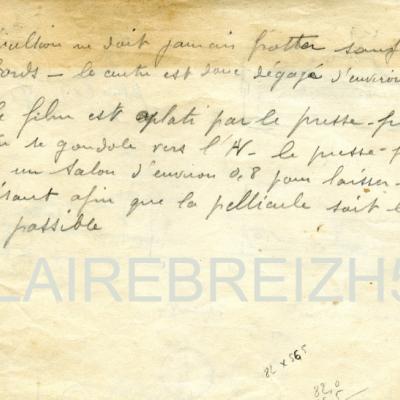 ne doit jamais frotter sauf
bords - le centre est donc dégagé d'environ
le film est aplati par le presse-
se gondole vers l'AV - le presse-
un talon d'environ 0,8 pour laisser
afin que la pellicule soit
possible
LAIREBREIZH5
82 x 56,5
82,0